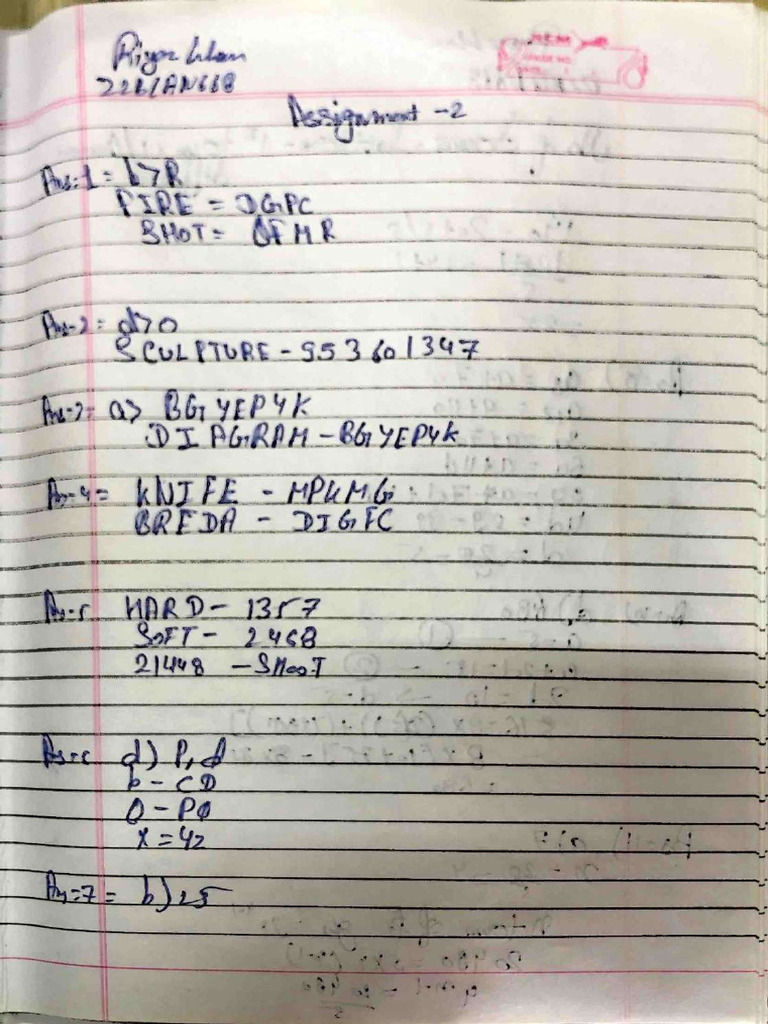 Riyaz Khan
Assignment - 2
Ans-1 = b> R
FIRE = DGPC
SHOT = QFMR
Ans-2 = d> 0
SCULPTURE - 953601347
Ans-3 = a> BGYEPYK
DIAGRAM - BGYEPYK
Ans-4 = KNIFE - MPKMG
BREDA - DIGFC
Ans-5 HARD - 1357
SOFT - 2468
21448 - SHOOT
d) P,
b - CD
O - PQ
X = YZ
Ans=7 = b) 25